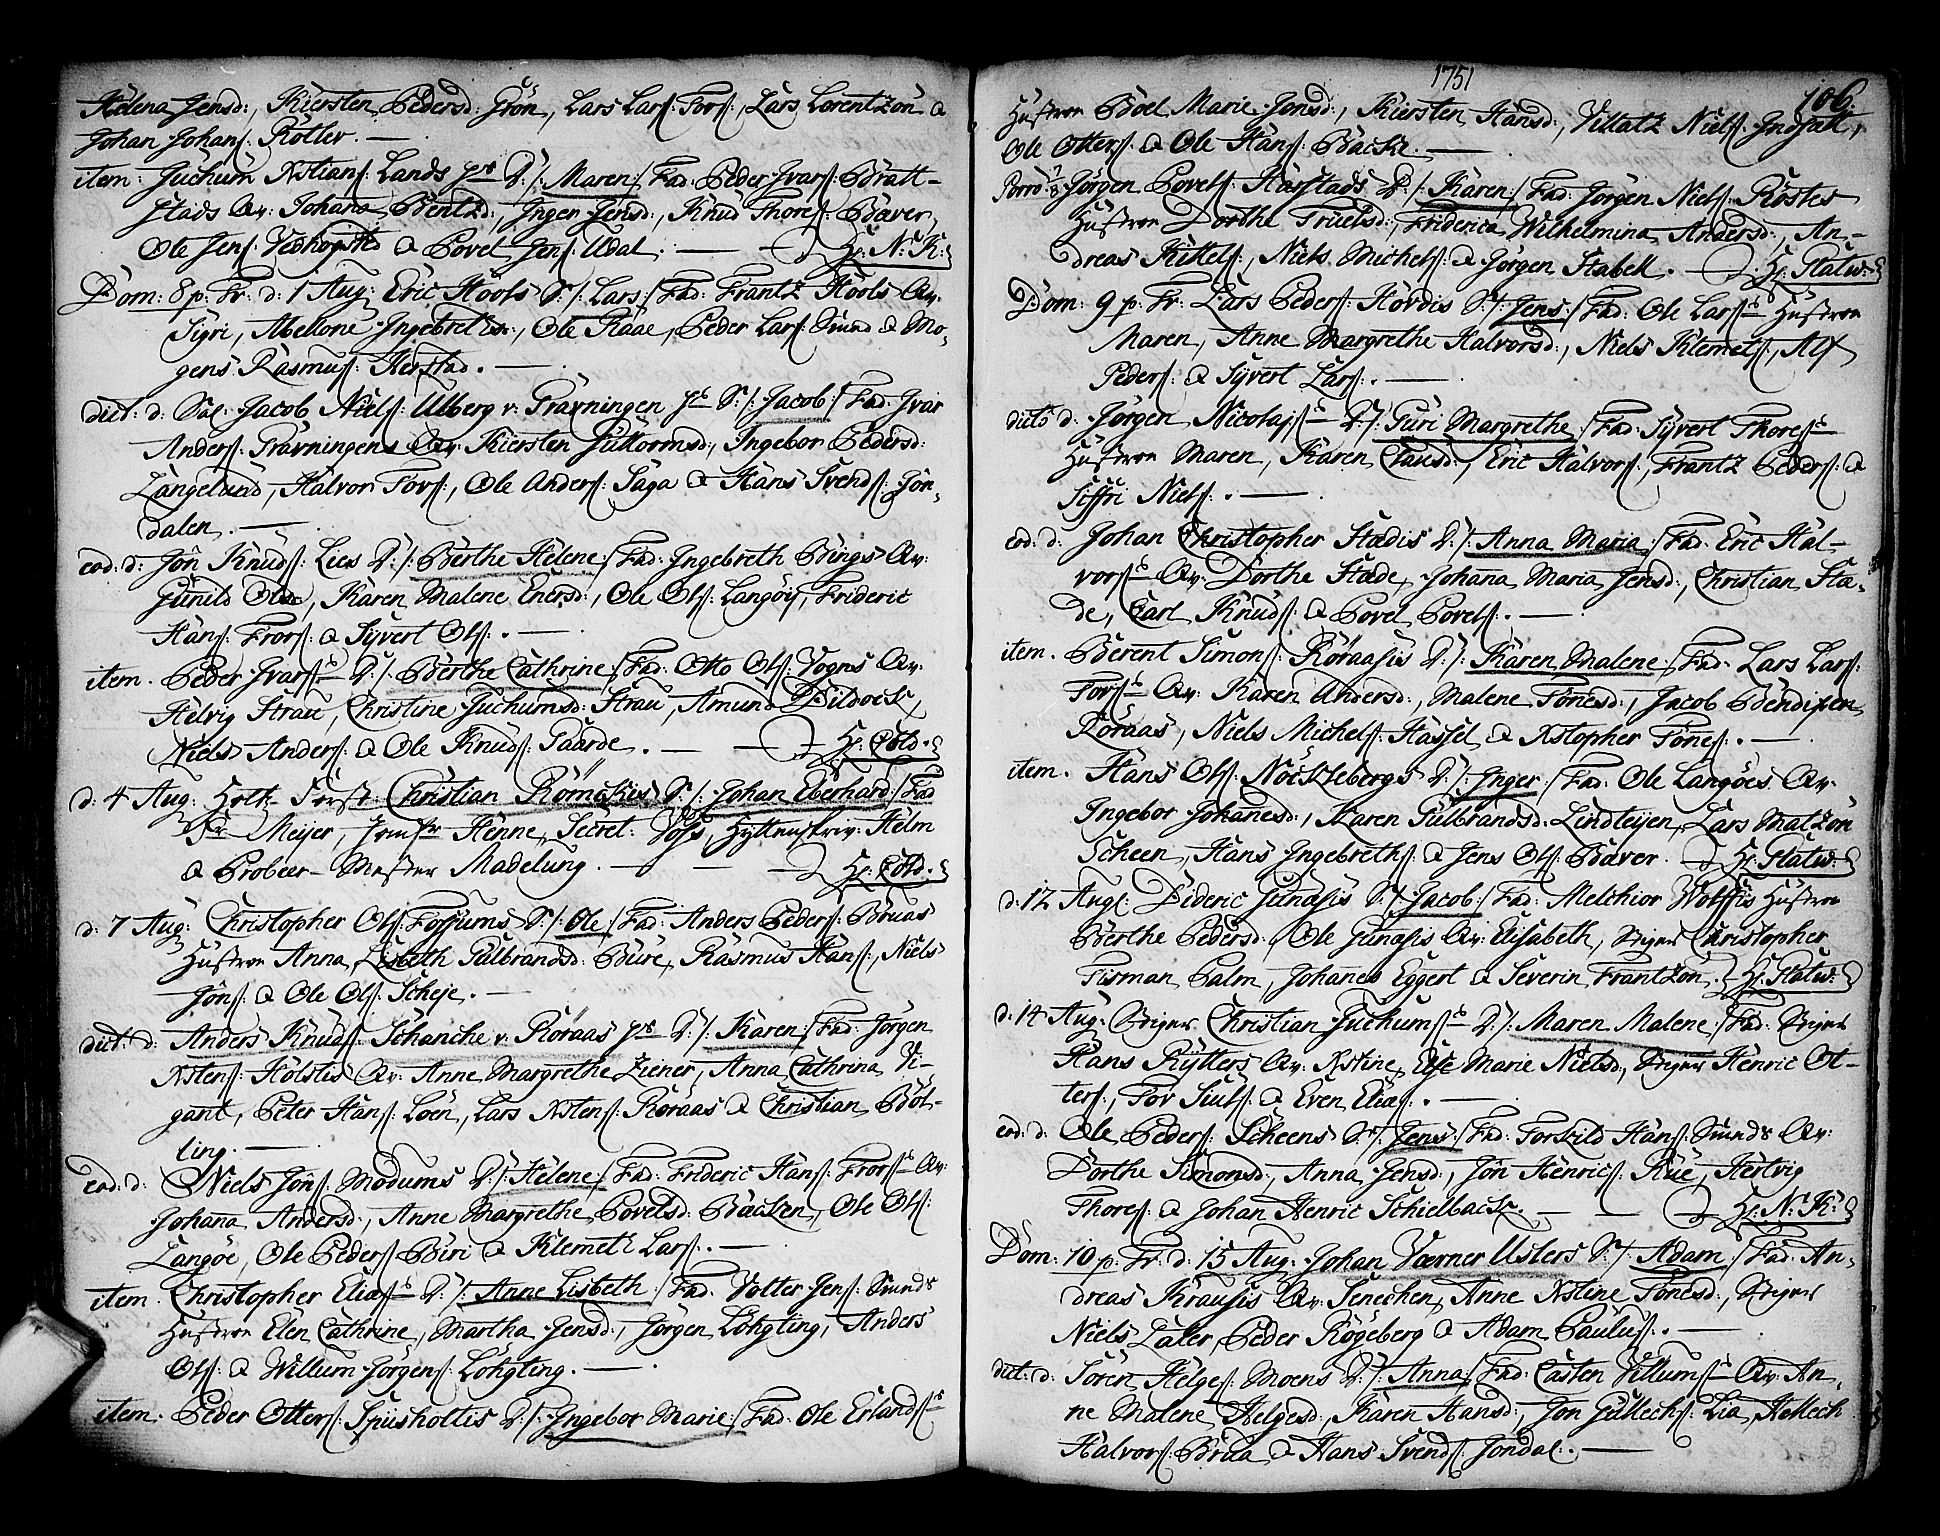 Helena Jensd:, Kiersten Pedersd: Grön, Lars Lars: Fors:, Lars Lorentzon &
Johan Johans: Rotler.
item: Juchum Xstians: Lands D:/: Maren :/ Fad: Peder Ivars: Bratt-
stads Qv: Johana Bentzd:, Inger Jensd:, Knud Thores: Bæver,
Ole Jens: & Povel Jens: Udal. Hr: N: K:
Dom: 8 p. Tr: d: 1 Aug: Eric Hools S:/: Lars :/ Fad: Frantz Hools Qv:
Sigri, Abellone Ingebretsd:, Ole Raae, Peder Lars: Smund & Mo-
gens Rasmus: Herstad.
dict: d: Sal: Jacob Niels: Ulberg v: Pravningen S:/: Jacob :/ Fad: Ivar
Anders: Pravningens Qv: Kiersten Guttormsd:, Ingebor Pedersd:
Langelund, Halvor Fors:, Ole Anders: Saga & Hans Svends: Jon-
dalen.
eod: d: Jon Knuds: Lies D:/: Berthe Helene :/ Fad: Ingebreth Bings Qv:
Gunild Olsd:, Karen Malene Enersd:, Ole Ols: Langöy, Frideric
Hans: Fros: & Syvert Ols:.
item. Peder Ivars: D:/: Berthe Cathrine :/ Fad: Otto Ols: Vogns Qv:
Helvig Strau, Christine Juchumsd: Strau, Amund Dildock,
Niels Anders: & Ole Knuds: Paarde. Hr: Cold.
d: 4 Aug: Holtz Först: Christian Römckes S:/: Johan Eberhard :/ Fad
Fr Meijer, Jomfr Henne, Secret: Voss, Hyttenskriv: Helm
& Probeer-Mester Madelung. Hr: Cold.
d: 7 Aug: Christopher Ols: Fossums S:/: Ole :/ Fad: Anders Peders: Bruas
Hustroe Anna, Lisbeth Gulbrandsd: Bure, Rasmus Hans:, Niels
Jöns: & Ole Ols: Scheje.
dict: d: Anders Knuds: Schanche v: Röraas D:/: Karen :/ Fad: Jörgen
Xstens: Holstis Qv: Anne Margrethe Ziener, Anna Cathrina Vi-
gant, Peter Hans: Loen, Lars Xstens: Röraas & Christian Böt-
ling.
eod: d: Niels Jons: Modums D:/: Helene :/ Fad: Frideric Hans: Fros: Qv:
Johana Andersd:, Anne Margrethe Povelsd: Backen, Ole Ols:
Langöe, Ole Peders: Buri & Klemet Lars:.
item. Christopher Elias: D:/: Anne Lisbeth :/ Fad: Volter Jens: Smunds
Hustroe Elen Cathrine, Martha Jensd:, Jörgen Löhgting, Anders
Ols: & Willum Jörgens: Löhgting.
item: Peder Otters: Spiisholtes D:/: Ingebor Marie :/ Fad: Ole Erlands:
1751
106.
Hustroe Boel Marie Jensd:, Kiersten Hansd:, Villatz Niels: Indsatt,
Ole Otters: & Ole Hans: Backe.
Jörgen Povels: Harstads D:/: Karen :/ Fad: Jörgen Niels: Röstes
Hustroe Dorthe Truelsd:, Friderica Wilhelmina Andersd:, An-
dreas Kittels:, Niels Michels: & Jörgen Stabell. Hr: Statw:
Dom: 9 p. Tr: Lars Peders: Hördis S:/: Jens :/ Fad: Ole Lars: Hustroe
Maren, Anne Margrethe Halvorsd:, Niels Klemets:, Alf
Peders: & Syvert Lars:.
dicto d: Jörgen Nicolajs: D:/: Guri Margrethe :/ Fad: Syvert Thores:
Hustroe Maren, Karen Clausd:, Eric Halvors:, Frantz Peders: &
Siffri Niels:.
eod: d: Johan Christopher Stædis D:/: Anna Maria :/ Fad: Eric Hal-
vors: Qv: Dorthe Stæde, Johana Maria Jensd:, Christian Stæ-
de, Carl Knuds: & Povel Povels:.
item. Berent Simons: Röraasis D:/: Karen Malene :/ Fad: Lars Lars:
Fors: Qv: Karen Andersd:, Malene Tönesd:, Jacob Bendixen
Röraas, Niels Michels: Hassel & Xstopher Tönes:.
item. Hans Ols: Nöcklebergs D:/: Inger :/ Fad: Ole Langöes Qv:
Ingebor Johanesd:, Karen Gulbrandsd: Lindteijen, Lars Matzön
Scheen, Hans Ingebreths: & Jens Ols: Bæver. Hr: Statw:
d: 12 Aug: Dideric Gunasis S:/: Jacob :/ Fad: Melchior Wolffis Hustroe
Berthe Pedersd:, Ole Gunasis Qv: Elisabeth, Christopher
Firman Palm, Johanes Eggert & Severin Frantzon. Hr: Statw:
d: 14 Aug: Christian Juchums: D:/: Maren Malene :/ Fad:
Hans Rytters Qv: Xstine, Else Marie Nielsd:, Henric Ot-
ters:, Tor Siuls: & Even Elias:.
eod: d: Ole Peders: Scheens S:/: Jens :/ Fad: Torkild Hans: Smunds Qv:
Dorthe Simonsd:, Anna Jensd:, Jon Henrics: Rue, Hertvig
Thores: & Johan Henric Schielbach. Hr: N: K:
Dom: 10 p. Tr: d: 15 Aug: Johan Værner Uslers S:/: Adam :/ Fad: An-
dreas Krausis Qv: Senechen, Anne Xstine Tönesd:,
Niels Later, Peder Rögeberg & Adam Paulus:.
dict: d: Sören Helges: Moens D:/: Anna :/ Fad: Casten Villums: Qv: An-
ne Malene Helgesd:, Karen Hansd:, Jon Gullechs: Lia, Hellech
Halvors: Brua & Hans Svends: Jondal.